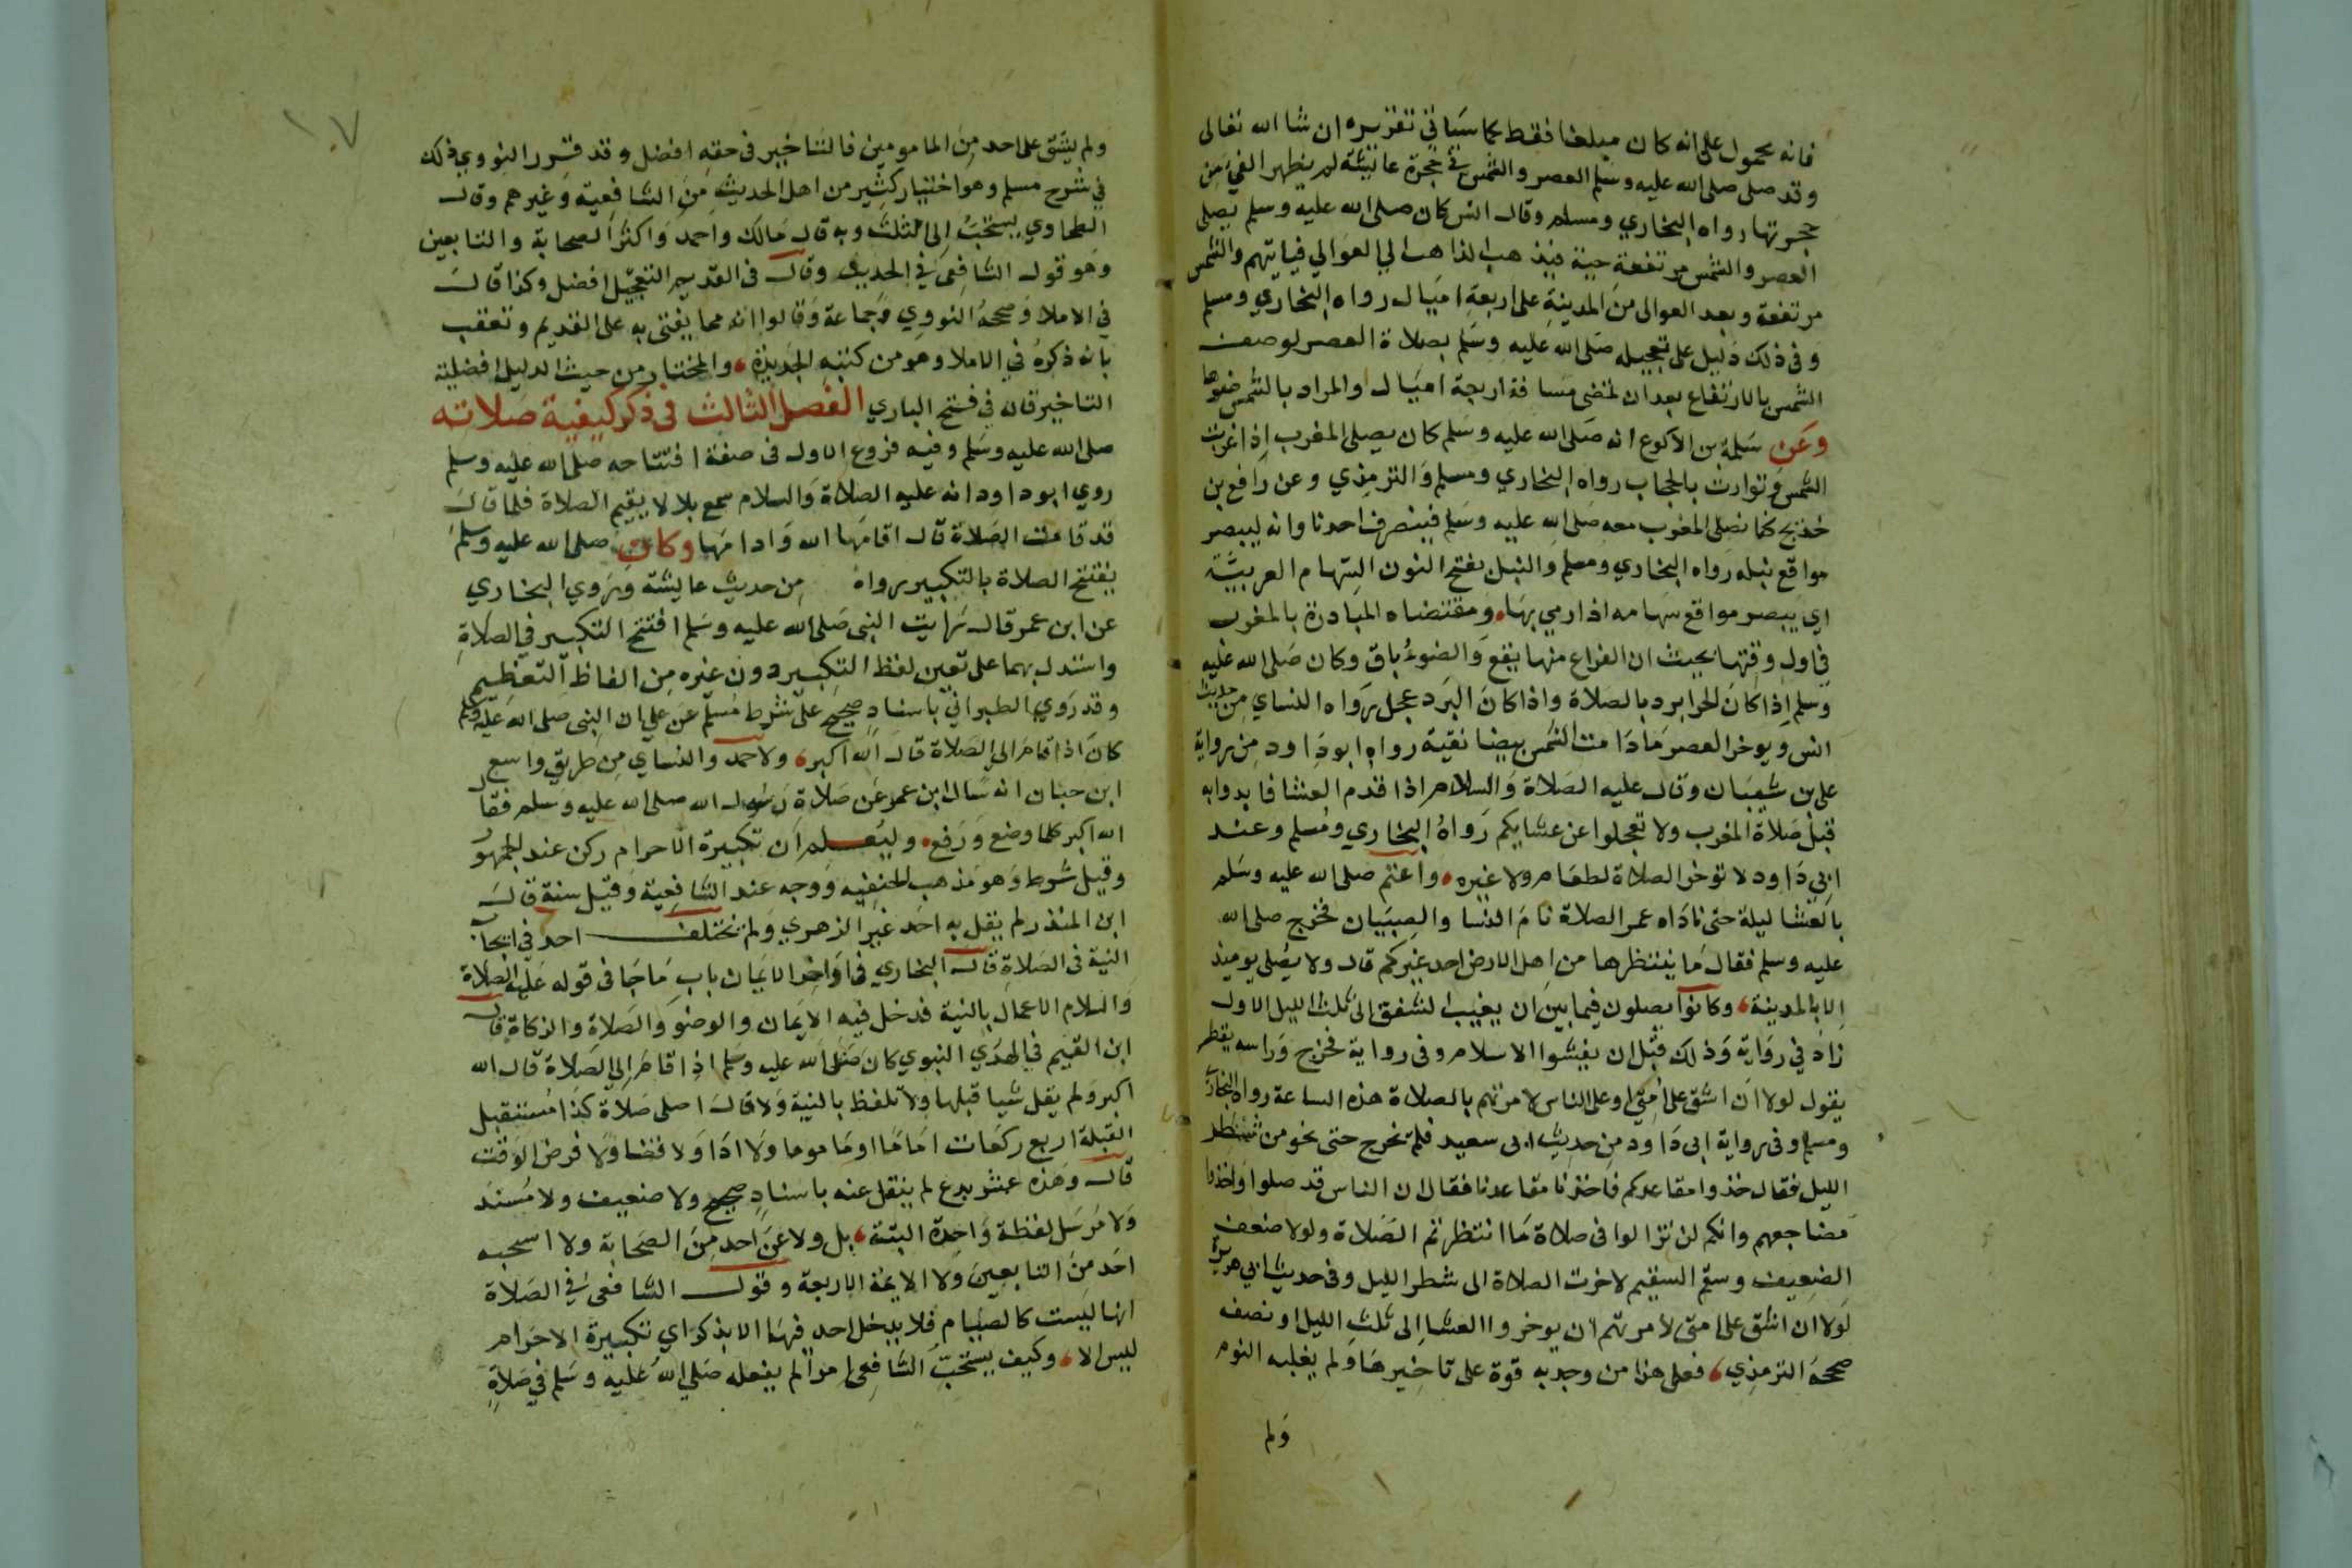 فانه محمول على انه كان مبلغا فقط كما سياتي تقريره ان شا الله تعالى
وقد صلى صلى الله عليه وسلم العصر والشمس في حجرة عائشة لم يظهر الفيء من
حجرتها رواه البخاري ومسلم وقال انس كان صلى الله عليه وسلم يصلى
العصر والشمس مرتفعة حية فيذهب الذاهب الى العوالي فياتيهم والشمس
مرتفعة وبعد العوالى من المدينة على اربعة اميال رواه البخاري ومسلم
وفى ذلك دليل على تعجيله صلى الله عليه وسلم بصلاة العصر لوصف
الشمس بالارتفاع بعد ان تمضى مسافة اربعة اميال والمراد بالشمس ضوها
وعن سلمة بن الاكوع انه صلى الله عليه وسلم كان يصلى المغرب اذا غربت
الشمس وتوارت بالحجاب رواه البخاري ومسلم والترمذي وعن رافع بن
خديج كنا نصلى المغرب معه صلى الله عليه وسلم فينصرف احدنا وانه ليبصر
مواقع نبله رواه البخاري ومسلم والنبل بفتح النون السهام العربية
اي يبصر مواقع سهامه اذا رمي بها، ومقتضاه المبادرة بالمغرب
في اول وقتها بحيث ان الفراغ منها يقع والضوء باق وكان صلى الله عليه
وسلم اذا كان الحر ابرد بالصلاة واذا كان البرد عجل رواه النساي من حديث
انس ويوخر العصر مادامت الشمس بيضا نقية رواه ابو داود من رواية
على بن شيبان وقال عليه الصلاة والسلام اذا قدم العشا فابدوا به
قبل صلاة المغرب ولا تعجلوا عن عشايكم رواه البخاري ومسلم وعند
ابي داود لا توخر الصلاة لطعام ولا غيره، واعتم صلى الله عليه وسلم
بالعشا ليلة حتى ناداه عمر الصلاة نام النسا والصبيان فخرج صلى الله
عليه وسلم فقال ما ينتظرها من اهل الارض احد غيركم قال ولا يصلى يوميذ
الا بالمدينة، وكانوا يصلون فيما بين ان يغيب الشفق الى ثلث الليل الاول
زاد في رواية وذلك قبل ان يفشوا الاسلام وفى رواية فخرج وراسه يقطر
يقول لولا ان اشق على امتى او على الناس لامرتهم بالصلاة هذه الساعة رواه البخارى
ومسلم وفى رواية ابى داود من حديث ابى سعيد فلم يخرج حتى نحو من شطر
الليل فقال خذوا مقاعدكم فاخذنا مقاعدنا فقال ان الناس قد صلوا واخذوا
مضاجعهم وانكم لن تزالوا فى صلاة ما انتظرتم الصلاة ولولا ضعف
الضعيف وسقم السقيم لاخرت الصلاة الى شطر الليل وفى حديث ابي هريرة
لولا ان اشق على امتى لامرتهم ان يوخروا العشا الى ثلث الليل او نصفه
صححه الترمذي، فعلى هذا من وجد به قوة على تاخيرها ولم يغلبه النوم
ولم
١٠٧
ولم يشق على احد من المامومين فالتاخير فى حقه افضل وقد قرر النووي ذلك
في شرح مسلم وهو اختيار كثير من اهل الحديث من الشافعية وغيرهم وقال
الطحاوي يستحب الى الثلث وبه قال مالك واحمد واكثر الصحابة والتابعين
وهو قول الشافعى في الجديد وقال فى القديم التعجيل افضل وكذا قال
في الاملا وصححه النووي وجماعة وقالوا انه مما يفتى به على القديم وتعقب
بانه ذكره في الاملا وهو من كتبه الجديدة، والمختار من حيث الدليل افضلية
التاخير قاله في فتح الباري الفصل الثالث فى ذكر كيفية صلاته
صلى الله عليه وسلم وفيه فروع الاول فى صفة افتتاحه صلى الله عليه وسلم
روي ابو داود انه عليه الصلاة والسلام سمع بلالا يقيم الصلاة فلما قال
قد قامت الصلاة قال اقامها الله وادامها وكان صلى الله عليه وسلم
يفتتح الصلاة بالتكبير رواه من حديث عايشة وروي البخاري
عن ابن عمر قال رايت النبى صلى الله عليه وسلم افتتح التكبير في الصلاة
واستدل بهما على تعين لفظ التكبير دون غيره من الفاظ التعظيم
وقد روي الطبراني باسناد صحيح على شرط مسلم عن على ان النبى صلى الله عليه وسلم
كان اذا قام الى الصلاة قال الله اكبر، ولاحمد والنساي من طريق واسع
ابن حبان انه سال ابن عمر عن صلاة رسول الله صلى الله عليه وسلم فقال
الله اكبر كلما وضع ورفع، وليعلم ان تكبيرة الاحرام ركن عند الجمهور
وقيل شرط وهو مذهب الحنفيه ووجه عند الشافعية وقيل سنة قال
ابن المنذر لم يقل به احد غير الزهري ولم يختلف احد في ايجاب
النية فى الصلاة قال البخاري فى اواخر الايمان باب ما جا فى قوله عليه الصلاة
والسلام الاعمال بالنية فدخل فيه الايمان والوضو والصلاة والزكاة قال
ابن القيم في الهدي النبوي كان صلى الله عليه وسلم اذا قام الى الصلاة قال الله
اكبر ولم يقل شيا قبلها ولا تلفظ بالنية ولا قال اصلى صلاة كذا مستقبل
القبلة اربع ركعات اماما او ماموما ولا ادا ولا قضا ولا فرض الوقت
قال وهذه عشر بدع لم ينقل عنه باسناد صحيح ولا ضعيف ولا مسند
ولا مرسل لفظة واحدة البتة، بل ولا عن احد من الصحابة ولا استحبه
احد من التابعين ولا الايمة الاربعة وقول الشافعى في الصلاة
انها ليست كالصيام فلا يدخل احد فيها الا بذكر اي تكبيرة الاحرام
ليس الا، وكيف يستحب الشافعى امرا لم يفعله صلي الله عليه وسلم في صلاة